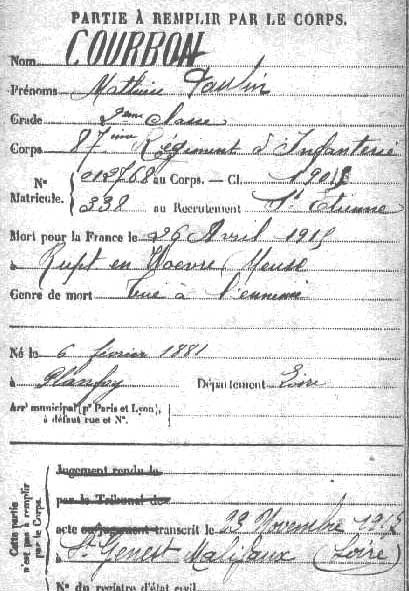 PARTIE À REMPLIR PAR LE CORPS.
Nom COURBON
Prénoms Mathieu Paulin
Grade 2ème classe
Corps 87ième Régiment d'Infanterie
Nos Matricule. { 012768 au Corps. — Cl. 1901
338 au Recrutement St Etienne
Mort pour la France le 26 Avril 1915
à Rupt en Woevre Meuse
Genre de mort Tué à l'ennemi
Né le 6 février 1881
à Planfoy Département Loire
Arrt municipal (pr Paris et Lyon),
à défaut rue et No.
Cette partie n'est pas à remplir par le Corps.
Jugement rendu le
par le Tribunal de
acte ou jugement transcrit le 23 Novembre 1915
à St Genest Malifaux (Loire)
No du registre d'état civil